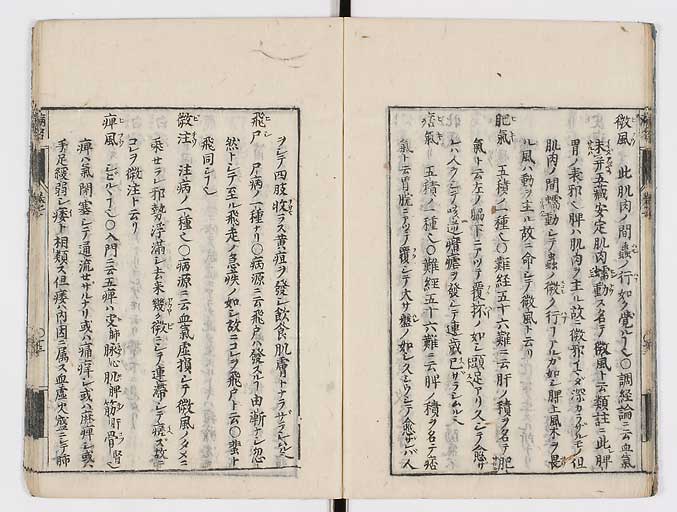 微風 此肌肉ノ間蟲ノ行如ク覺ルヲ云〇調經論ニ云血氣
未并五藏安定肌肉蠕動ス名テ微風ト云類註ニ此脾
胃ノ表邪也脾ハ肌肉ヲ主ル故ニ微邪イマダ深カラザルモノ但
肌肉ノ間蠕動シテ蟲ノ微ク行
ル風ハ動ヲ主ル故ニ命シテ微風ト云リ
肥氣 五積ノ一種也〇難經五十六難ニ云肝ノ積ヲ名テ肥
氣ト云左ノ脇下ニアツテ覆杯ノ如シ頭足アリ久シテ愈ザ
レハ人ヲシテ咳逆 瘧ヲ發シテ連歲已ザラシムル
痞氣 五積ノ一種也〇難經五十六難ニ云脾ノ積ヲ名テ痞
氣ト云胃脘ニアツテ覆シテ大サ盤ノ如シ久シフシテ愈ザレバ人
ヲシテ四肢收ラス黄疸ヲ發シ飲食肌膚トナラザラシム
飛尸 尸病ノ一種ナリ〇病源ニ云飛尸ハ發スル由漸ナシ忽
然トシテ至ル飛走ノ急疾ノ如シ故ニコレヲ飛尸ト云〇蜚ト
飛同シ
微注 注病ノ一種也〇病源ニ云血氣虛損シテ微風ノタメニ
乘セラレ邪勢浮滿シ去來幾微ニシテ連滯シテ 故ニ
コレヲ微注ト云リ
痺風 シビル 〇入門ニ云五痺ハ皮肺脉心肌脾筋肝骨腎
痺ハ氣閉塞シテ通流セザルナリ或ハ痛痒シ或ハ麻痺シ或ハ
手足緩弱シ痿ト相類ス但痿ハ内因ニ属ス血虛火盛ニシテ肺